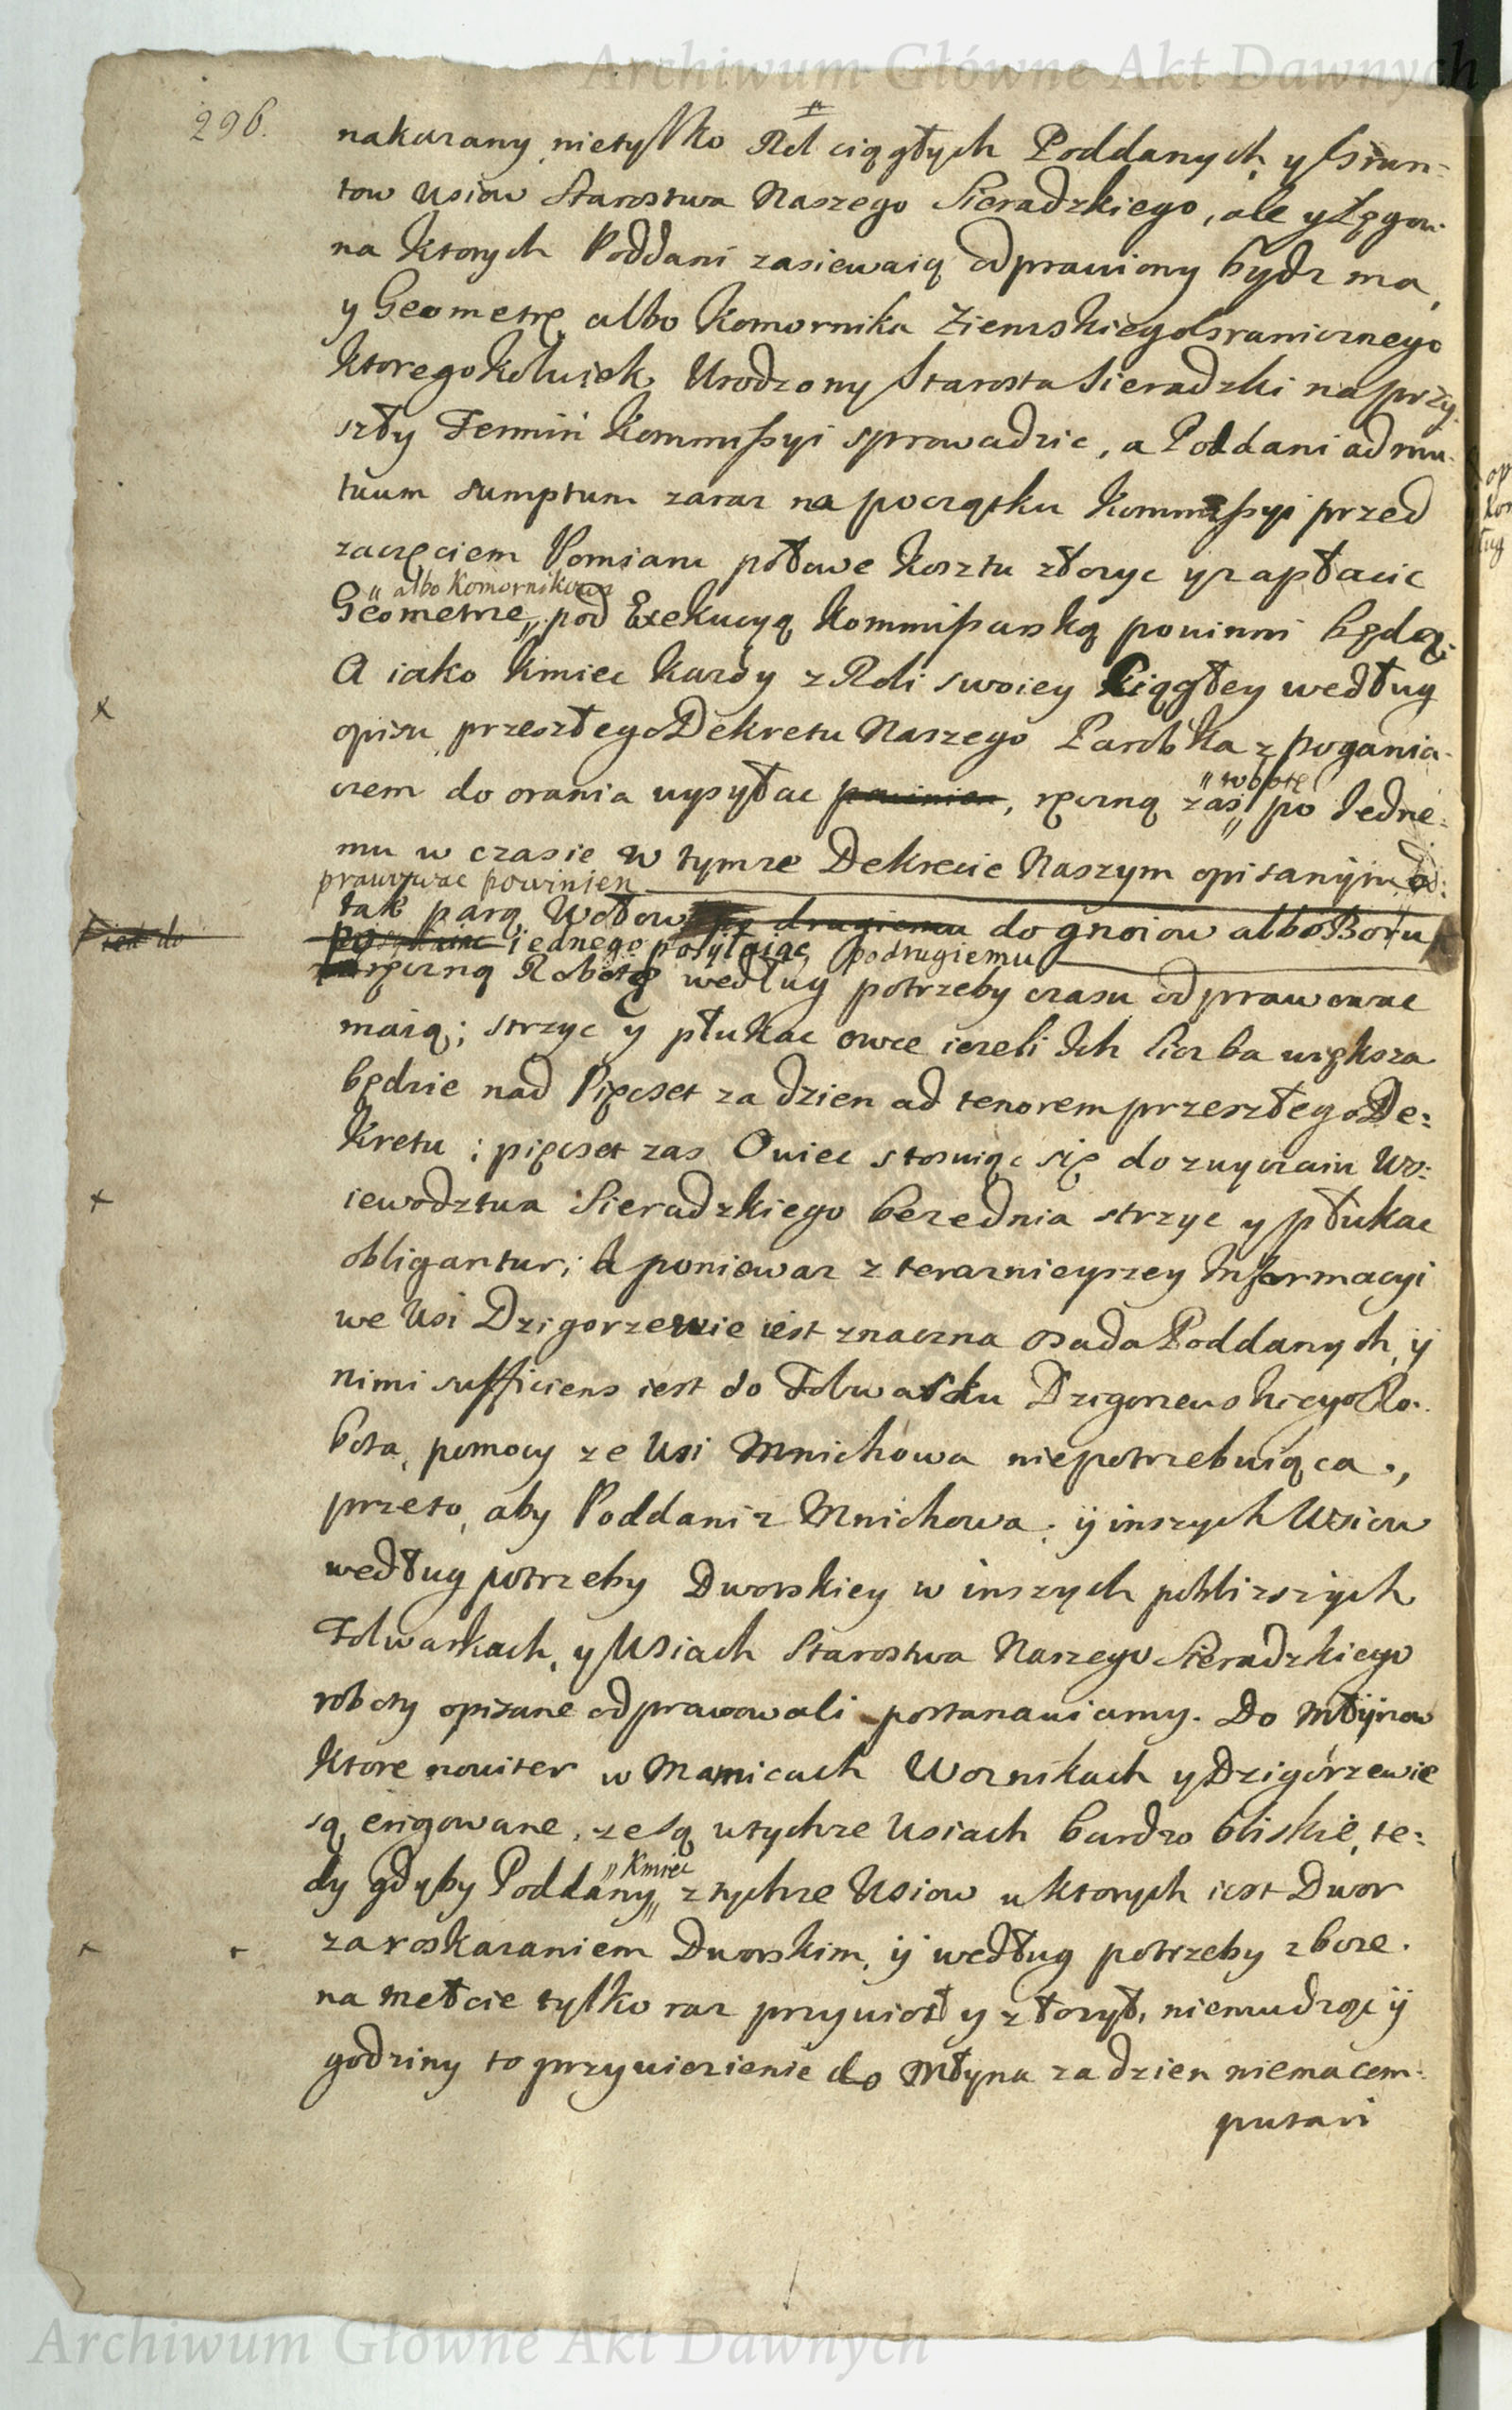 Archiwum Główne Akt Dawnych
296.
nakazany nietylko Rol ciągłych Poddanych y Grun-
tow Wsiow Starostwa Naszego Sieradzkiego, ale y Łęgow
na ktorych Poddani zasiewaią odprawiony bydz ma,
y Geometrę albo Komornika Ziemskiego Granicznego
ktoregokolwiek Urodzony Starosta Sieradzki na przy-
szły Termin Kommissyi sprowadzic, a Poddani ad mu-
tuum sumptum zaraz na początku Kommissyi przed
zaczęciem Pomiaru połowe kosztu złozyc y zapłacic
" albo Komornikowi
Geometrze " pod Exekucyą Kommissarską powinni będą.
A iako Kmiec kazdy z Roli swoiey Ciągłey według
opisu przeszłego Dekretu Naszego Parobka z pogania-
czem do orania wysyłac powinien, ręczną zas po Jedne-
" robotę
mu w czasie w tymze Dekrecie Naszym opisanym od-
prawowac powinien
tak parą Wołow po drugiemu do gnoiow albo Boru
iednego posyłaiąc po drugiemu
ręczną Robotę według potrzeby czasu odprawowac
maią; strzyc y płukac owce iezeli Ich liczba większa
będzie nad Pięcset za dzien ad tenorem przeszłego De-
kretu; pięcset zas Owiec stosuiąc się do zwyczaiu Wo-
iewodztwa Sieradzkiego bezednia strzyc y płukac
obligantur; A poniewaz z teraznieyszey Informacyi
we Wsi Dzigorzewie iest znaczna osada Poddanych, y
nimi sufficiens iest do Folwarku Dzigorzewskiego Ro-
bota, pomocy ze Wsi Mnichowa niepotrzebuiąca,
przeto, aby Poddani z Mnichowa y inszych Wsiow
według potrzeby Dworskiey w inszych poblizszych
Folwarkach, y Wsiach Starostwa Naszego Sieradzkiego
roboty opisane odprawowali postanawiamy. Do Młynow
ktore noviter w Mamicach Woznikach y Dzigórzewie
są erigowane, ze są w tychze Wsiach bardzo bliskie, te-
dy gdyby Poddany " z tychze Wsiow w ktorych iest Dwor
" Kmiec
za roskazaniem Dworskim, y według potrzeby zboze
na mełcie tylko raz przywiozł y złozył, niemudząc y
godziny to przywiezienie do Młyna za dzien niema com-
putari
Archiwum Główne Akt Dawnych